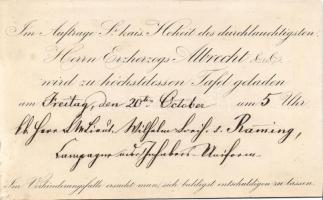 Im Auftrage Sr kais. Hoheit des durchlauchtigsten
Herrn Erzherzogs Albrecht &.&.
wird zu höchstdessen Tafel geladen
am Freitag, den 20ten October um 5 Uhr
Herr Wilhelm v. Raming,
Campagne Uniform.
Im Verhinderungsfalle ersucht man, sich baldigst entschuldigen zu lassen.